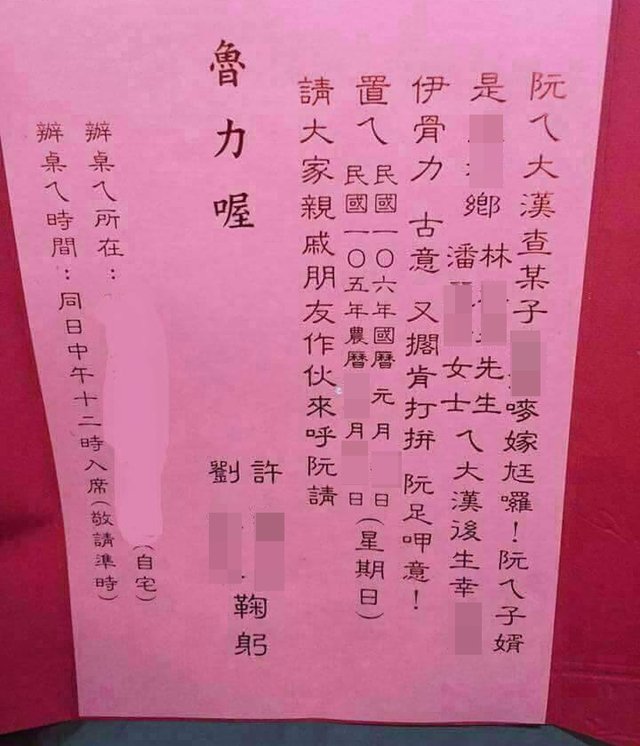 阮ㄟ大漢查某子 嘜嫁尪囉！阮ㄟ子婿
是 鄉 林 先生
潘 女士 ㄟ大漢後生幸
伊骨力 古意 又擱肯打拚 阮足呷意！
置ㄟ 民國一〇六年國曆 元月 日
民國一〇五年農曆 月 日 (星期日)
請大家親戚朋友作伙來呼阮請
許
劉
鞠躬
魯力喔
辦桌ㄟ所在： (自宅)
辦桌ㄟ時間：同日中午十二時入席(敬請準時)